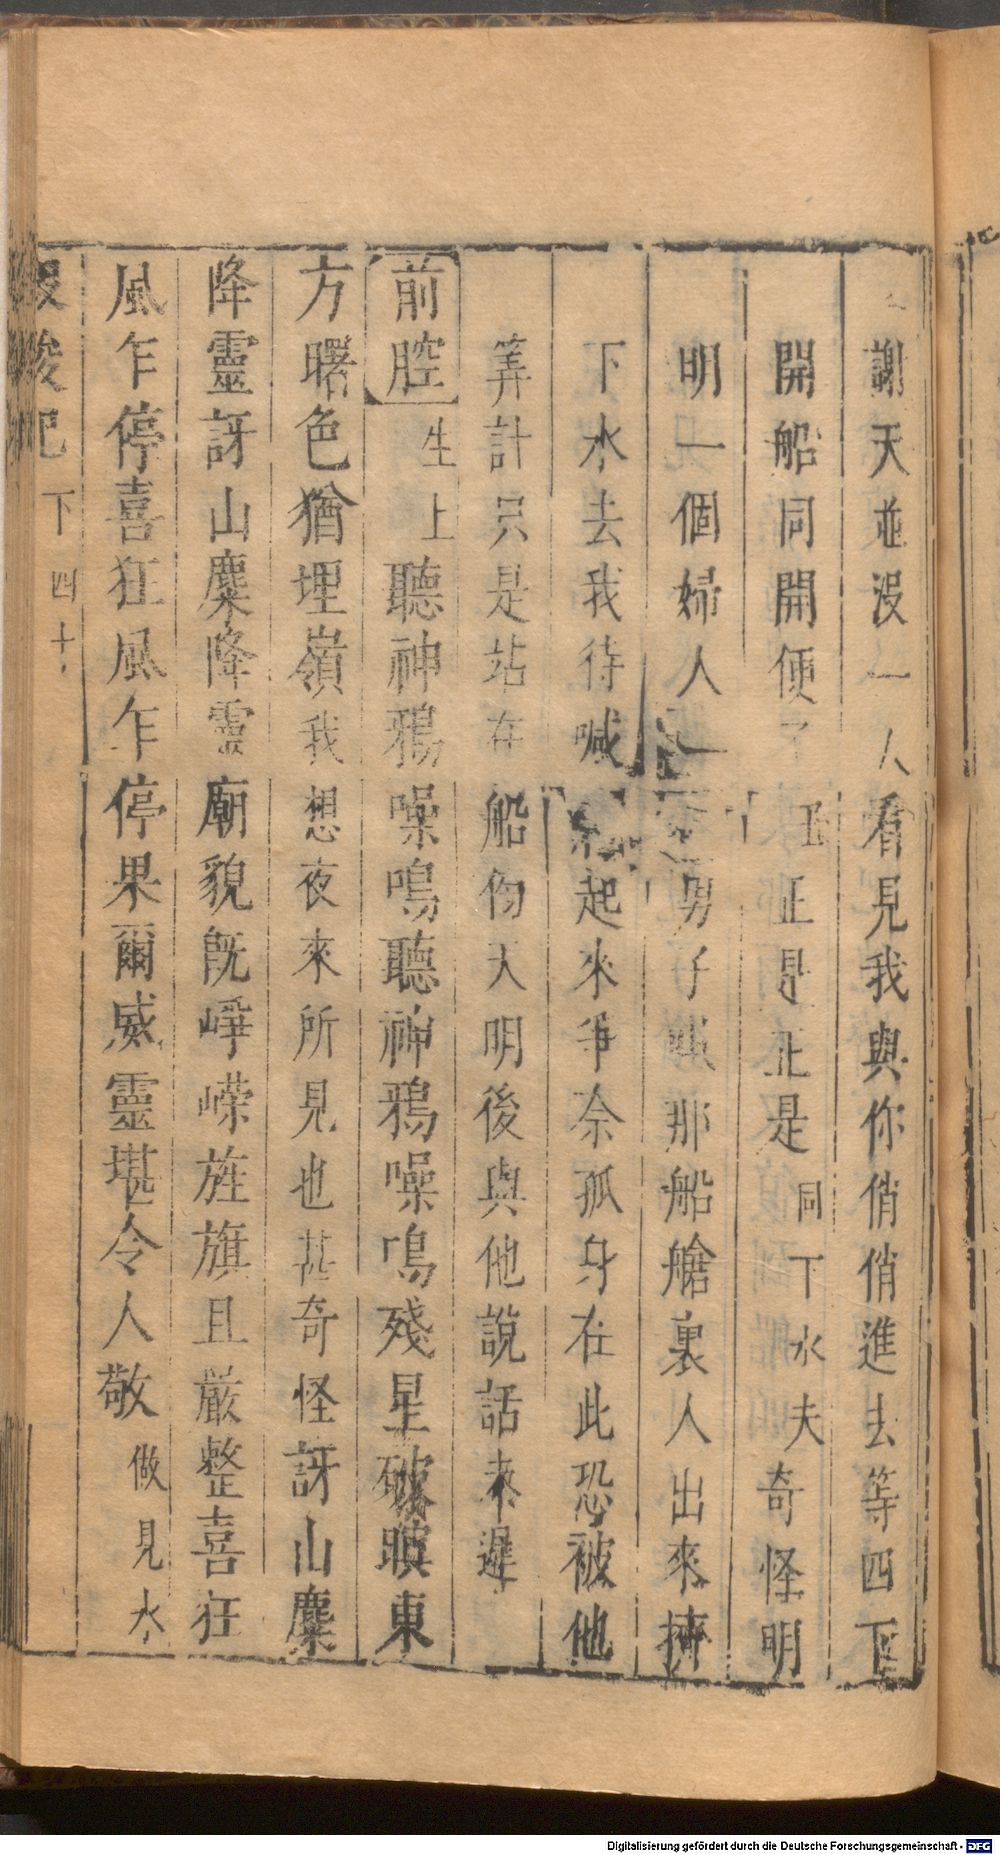 謝天並没一人看見我與你俏俏進去等四下
開船同開便了 玉 正是正是 同下水 夫 奇怪明
明一個婦人一 男子 那船艙裏人出來擠
下水去我待喊 起來爭奈孤身在此恐被他
筭計只是站在船傍天明後與他說話來遲
前腔 生上 聽神鴉噪鳴聽神鴉噪鳴殘星破暝東
方曙色猶埋嶺我想夜來所見也甚奇怪訝山麋
降靈訝山麋降靈廟貌既崢嶸旌旗且嚴整喜狂
風乍停喜狂風乍停果爾威靈堪令人敬 做見水
投梭記 下 四十
Digitalisierung gefördert durch die Deutsche Forschungsgemeinschaft - DFG